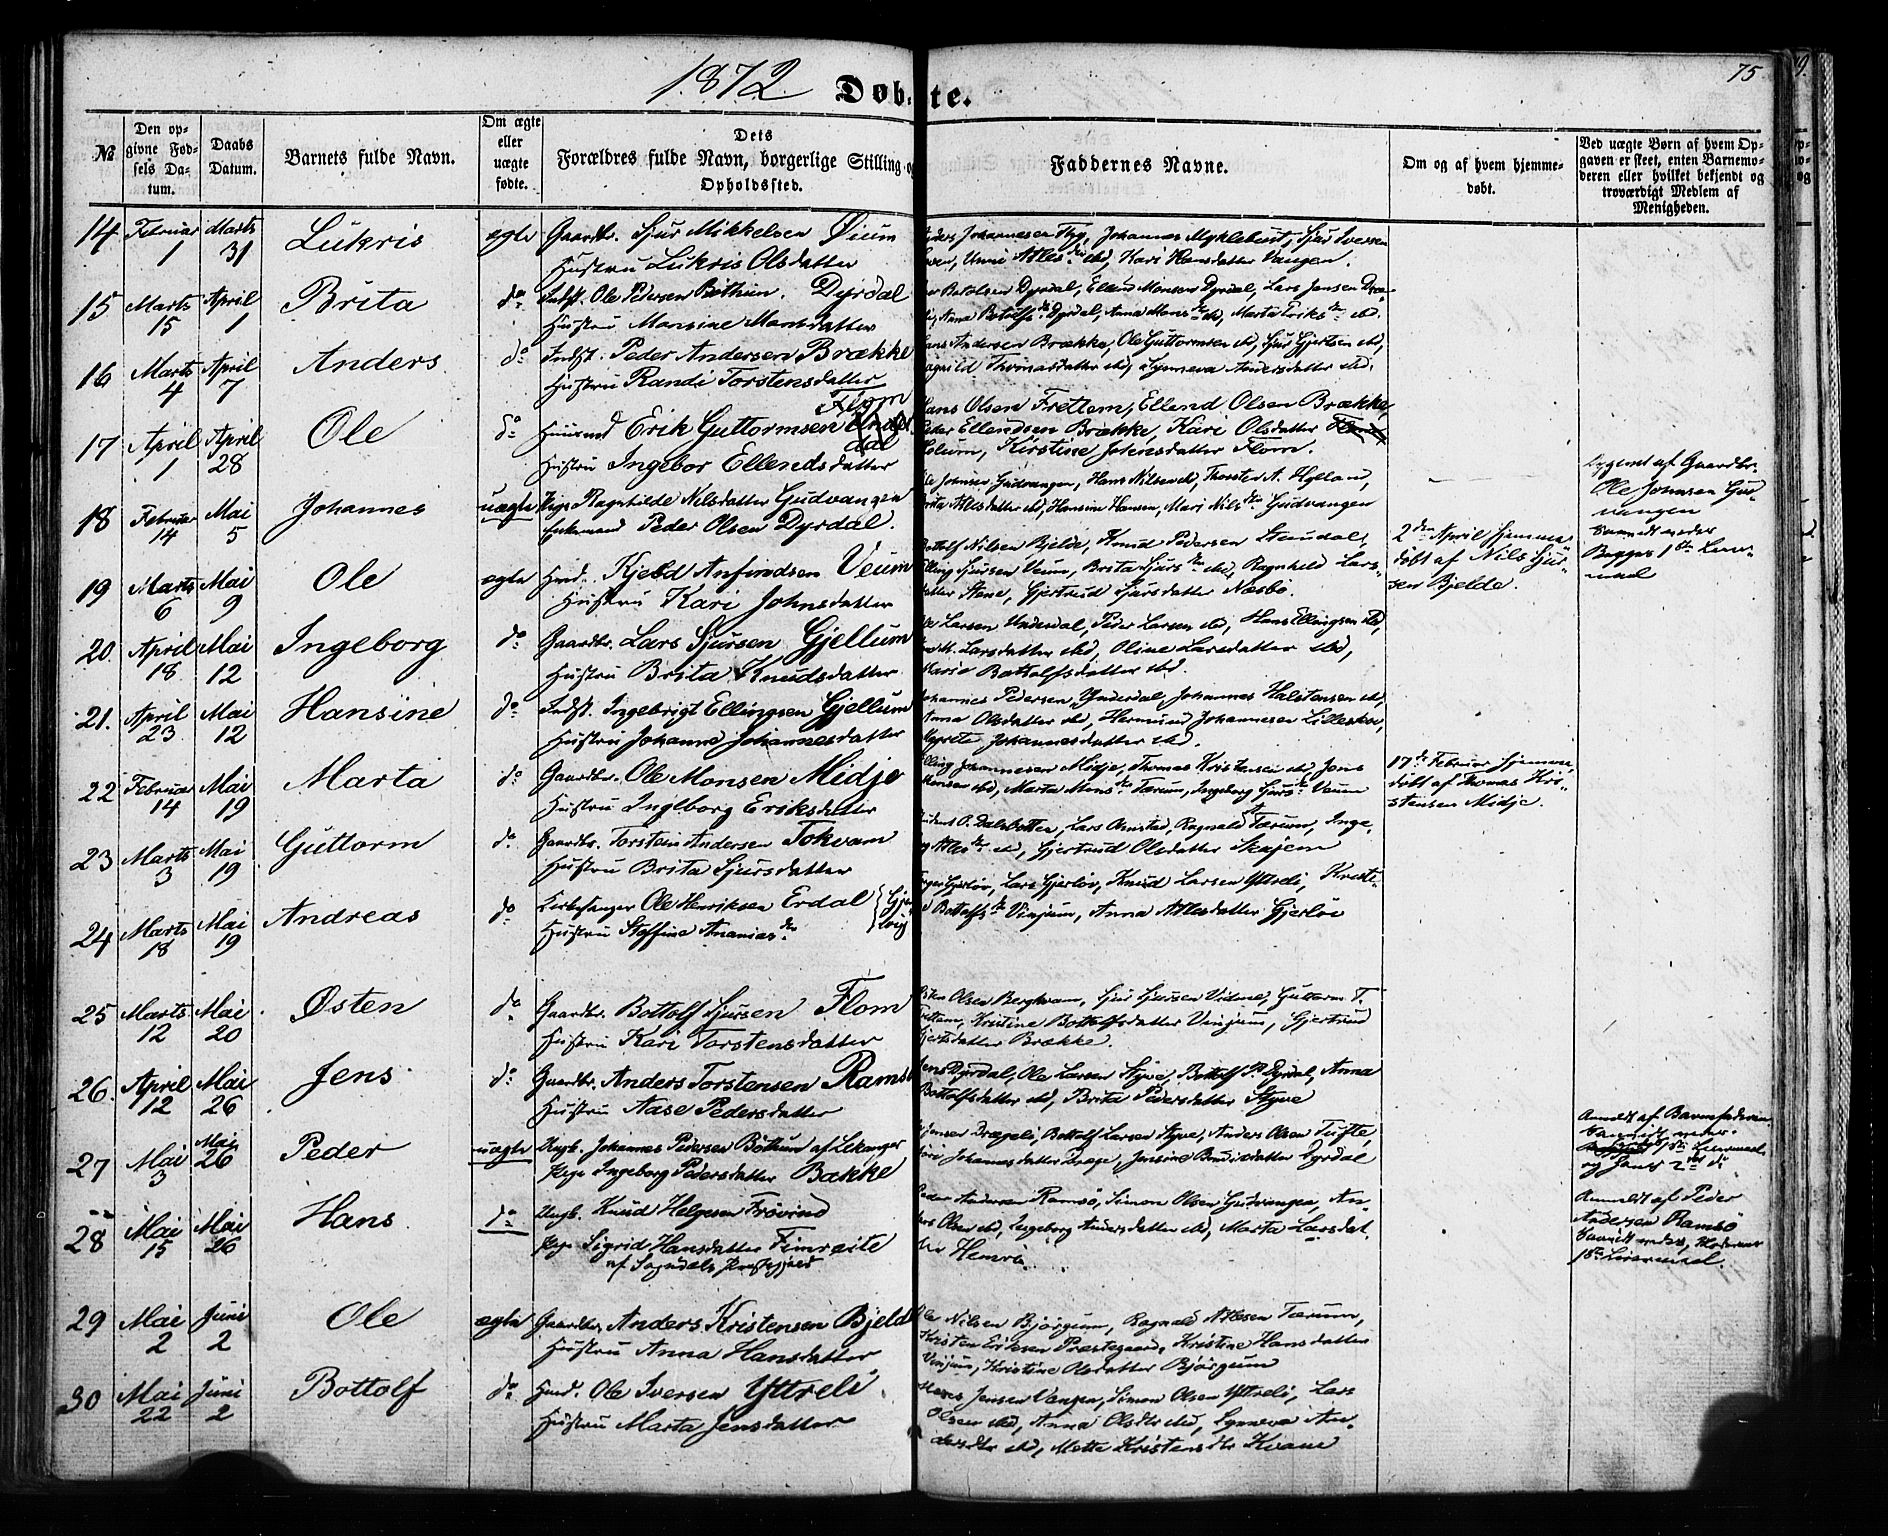 1872. Døbte. 75
№
Den opgivne Fødsels Datum.
Daabs Datum.
Barnets fulde Navn.
Om ægte eller uægte fødte.
Dets Forældres fulde Navn, borgerlige Stilling og Opholdssted.
Faddernes Navne.
Om og af hvem hjemmedøbt.
Ved uægte Børn af hvem Opgaven er skeet, enten Barnemoderen eller hvilket bekjendt og troværdigt Medlem af Menigheden.
14 Februar 1 Marts 31 Lukris ægte Gaardbr. Sjur Mikkelsen Øium
Hustru Lukris Olsdatter
Johannesen Fly, Johannes Myklebust, Sjur Iversen
Unni Atlesdtr ibd, Kari Hansdatter Vangen.
15 Marts 15 April 1 Brita do Indst. Ole Pedersen Bøthun. Dyrdal
Hustru Monsine Monsdatter
Botolsen Dyrdal, Ellend Monsen Dyrdal, Lars Jensen
Anna Botolfsdtr Dyrdal, Anna Monsdtr ibd, Marta Eriksdtr ibd.
16 Marts 4 April 7 Anders do Indst. Peder Andersen Brække
Hustru Randi Torstensdatter
Andersen Brække, Ole Guttormsen ibd, Sjur Gjertsen ibd,
Thomasdatter ibd, Synneva Andersdatter ibd.
17 April 1 April 28 Ole do Huusmd Erik Guttormsen Flom
Hustru Ingebor Ellendsdatter
Hans Olsen Fretlem, Ellend Olsen Brække,
Ellendsen Brække, Kari Olsdatter
Holum, Kirstine Johnsdatter Flom.
18 Februar 14 Mai 5 Johannes uægte Pige Ragnhilde Nilsdatter Gudvangen
Enkemand Peder Olsen Dyrdal.
Ole Johnsen Gudvangen, Hans Nilsen ibd, Thorsten A. Hylland,
Brita Atlesdatter ibd, Hansine Hansen, Mari Nilsdtr Gudvangen
af Gaardbr.
Ole Johnsen Gudvangen
Begges 1ste Leiermaal
19 Marts 6 Mai 9 Ole ægte Hmd. Kjeld Anfindsen Veum
Hustru Kari Johnsdatter
Bottolf Nilsen Bjelde, Knud Pedersen Steudal,
Elling Sjursen Veum, Brita Sjursdtr ibd, Ragnhild Larsdatter Stene, Gjertrud Sjursdatter Næsbø.
2den April hjemmedøbt af Nils Sjursen Bjelde.
20. April 18 Mai 12 Ingeborg do Gaardbr. Lars Sjursen Gjellum
Hustru Brita Knudsdatter
Ole Larsen Underdal, Peder Larsen ibd, Hans Ellingsen ibd,
Larsdatter ibd, Oline Larsdatter ibd,
Marie Bottolfsdatter ibd.
21. April 23 Mai 12 Hansine do Indst. Ingebrigt Ellingsen Gjellum
Hustru Johanne Johannesdatter
Johannes Pedersen Underdal, Johannes Halstensen ibd,
Anna Olsdatter ibd, Hermund Johannesen Lilleskov,
Johannesdatter ibd.
22 Februar 14 Mai 19 Marta do Gaardbr. Ole Monsen Midje
Hustru Ingeborg Eriksdatter
Elling Johannesen Midje, Thomas Kristensen ibd, Jens
Monsen ibd, Marta Monsdtr Tærum, Ingeborg Sjursdtr Veum
17de Februar hjemmedøbt af Thomas Kristensen Midje.
23 Marts 3 Mai 19 Guttorm do Gaardbr. Torstein Andersen Tokvam
Hustru Brita Sjursdatter
O. Dalsbotten, Lars Onstad, Ragnald A Tærum,
Atlesdtr ibd, Gjertrud Olsdatter Skajem
24 Marts 18 Mai 19 Andreas do Kirkesanger Ole Henriksen Erdal
Hustru Stoffine Ananiasdtr
Gjerløv, Lars Gjerløv, Knud Larsen Yttreli,
Bottolfsdtr Vinjum, Anna Atlesdatter Gjerløv
25 Marts 12 Mai 20 Østen do Gaardbr. Bottolf Sjursen Flom
Hustru Kari Torstensdatter
Østen Olsen Bergkvam, Sjur Sjursen Vidme, Guttorm T.
Fretlem, Kristine Bottolfsdatter Vinjum, Gjertrud
Gjertsdatter Brække.
26. April 12 Mai 26 Jens do Gaardbr. Anders Torstensen Ramsø
Hustru Aase Pedersdatter
Jens Dyrdal, Ole Larsen Styve, Bottolf P. Dyrdal, Anna
Bottolfsdatter ibd, Brita Pedersdatter Styve
27 Mai 3 Mai 26 Peder uægte Ungk. Johannes Pedersen Bøthun af Lekanger,
Pige Ingeborg Pedersdatter Bakke
Jensen Drægeli, Bottolf Larsen Styve, Anders Olsen Tufte,
Johannesdatter Drege, Jensine Bendixdatter Dyrdal
Anmeldt af Barnefaderen
1ste Leiermaal
og hans 2det do
28 Mai 15 Mai 26 Hans do Ungk. Knud Helgesen Frøvind
Pige Sigrid Hansdatter Fimreite
af Sogndals Præstegjeld
Peder Andersen Ramsø, Simon Olsen Gudvangen,
Olsen ibd, Ingeborg Andersdatter ibd, Marta Larsdatter
Anmeldt af Peder
Andersen Ramsø
Moderens
1ste Leiermaal.
29 Mai 2 Juni 2 Ole ægte Gaardbr. Anders Kristensen Bjelde
Hustru Anna Hansdatter
Ole Nilsen Bjørgum, Ragnald Atlesen Tærum,
Kristen Eriksen Præstegaard, Kristine Hansdatter
Vinjum, Kristine Olsdatter Bjørgum
30 Mai 22 Juni 2 Bottolf do Hmd. Ole Iversen Yttreli.
Hustru Marta Jensdatter
Jensen Vangen, Simon Olsen Yttreli, Lars
Olsen ibd, Anna Olsdtr ibd, Synneva Andersdtr ibd, Mette Kristensdtr Kvam